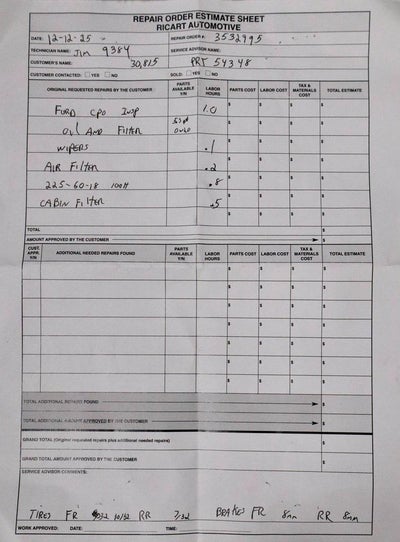 REPAIR ORDER ESTIMATE SHEET
RICART AUTOMOTIVE
DATE: 12-12-25 REPAIR ORDER #: 3532995
TECHNICIAN NAME: Jim 9384 SERVICE ADVISOR NAME:
CUSTOMER'S NAME: 30,815 PRT 54348
CUSTOMER CONTACTED: ☐ YES ☐ NO SOLD: ☐ YES ☐ NO
ORIGINAL REQUESTED REPAIRS BY THE CUSTOMER PARTS AVAILABLE Y/N LABOR HOURS PARTS COST LABOR COST TAX & MATERIALS COST TOTAL ESTIMATE
FORD CPO Insp 1.0 $ $ $ $
Oil AND Filter $ $ $ $
WIPERS .1 $ $ $ $
AIR Filter .2 $ $ $ $
225-60-18 100H .8 $ $ $ $
CABIN Filter .5 $ $ $ $
TOTAL $
AMOUNT APPROVED BY THE CUSTOMER $
CUST. APPR. Y/N ADDITIONAL NEEDED REPAIRS FOUND PARTS AVAILABLE Y/N LABOR HOURS PARTS COST LABOR COST TAX & MATERIALS COST TOTAL ESTIMATE
$ $ $ $
$ $ $ $
$ $ $ $
$ $ $ $
$ $ $ $
$ $ $ $
$ $ $ $
TOTAL ADDITIONAL REPAIRS FOUND $
TOTAL ADDITIONAL AMOUNT APPROVED BY THE CUSTOMER $
GRAND TOTAL (Original requested repairs plus additional needed repairs) $
GRAND TOTAL AMOUNT APPROVED BY THE CUSTOMER $
SERVICE ADVISOR COMMENTS:
TIRES FR 10/32 RR 7/32 BRAKES FR 8mm RR 8mm
WORK APPROVED: DATE: TIME: